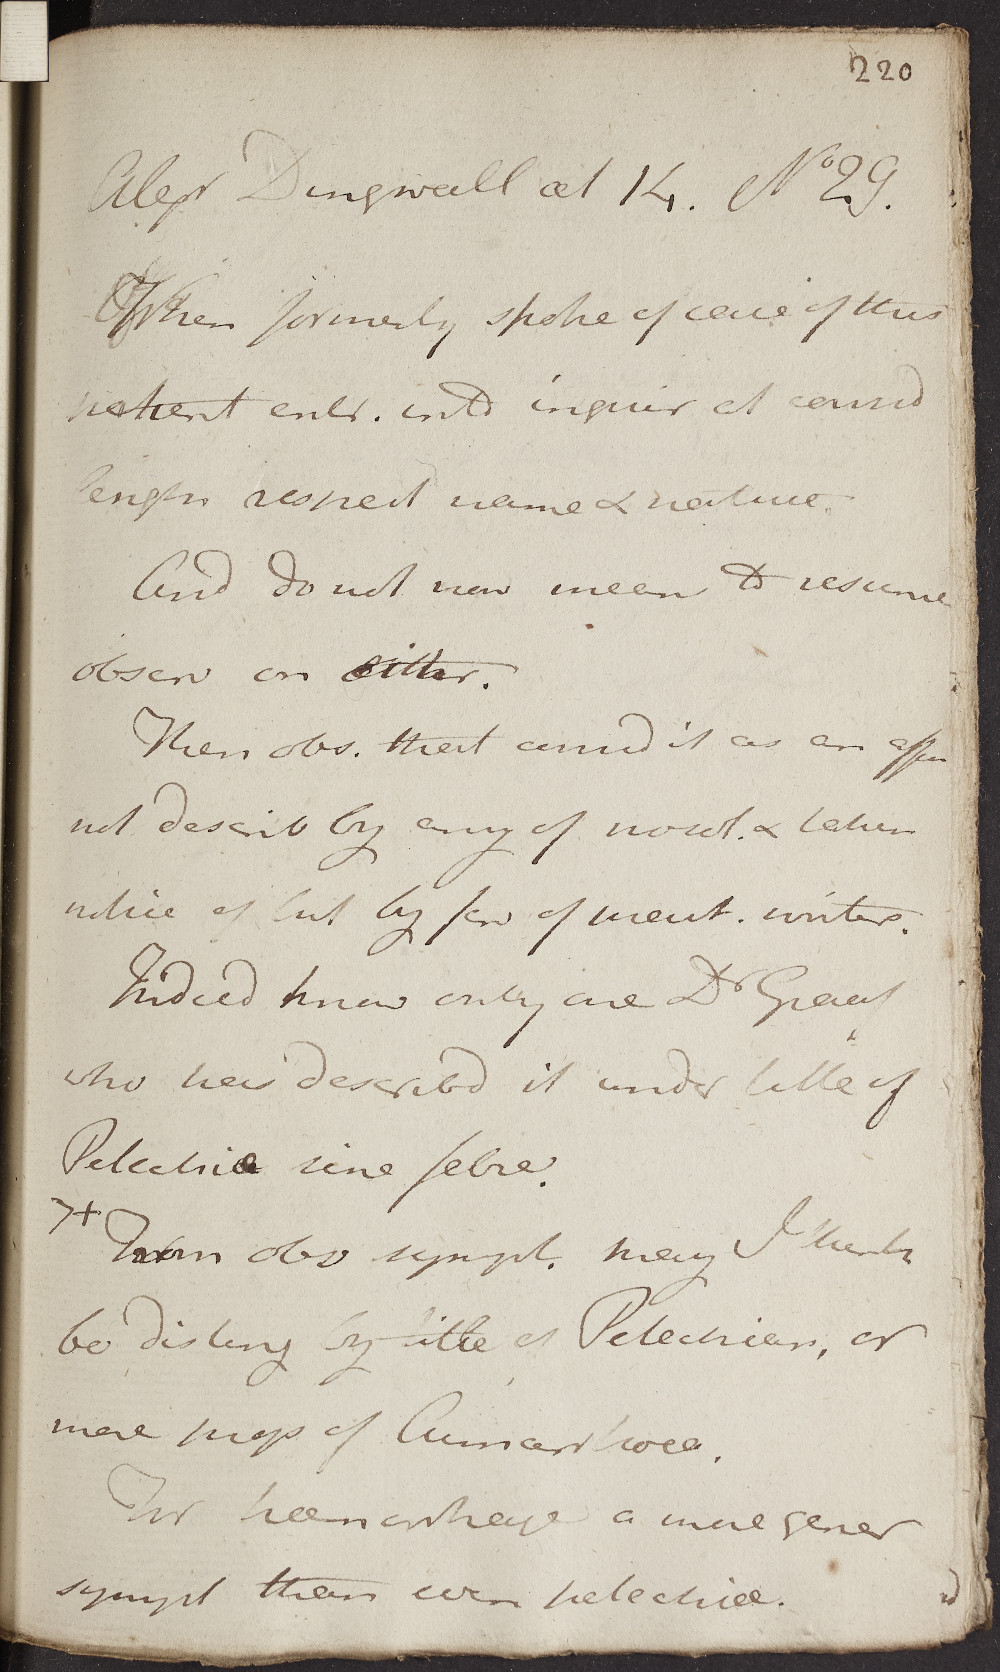 220
Alexr Dingwall æt 14. No 29.
When formerly spoke of case of this
patient entr. into inquir at consid
length respect name & nature.
And do not now mean to resume
observ on either.
Then obs. that consid it as an affn
not describ by any of nosol. & taken
notice of but by few of pract. writers.
Indeed know only one Dr Graaf
who has describd it under title of
Petechiæ sine febre.
7+ From obv sympt. may I think
be disting by title of Petechien, or
more prop of Cumarrhoea.
For hæmorrhage a more gener
sympt than even petechiæ.